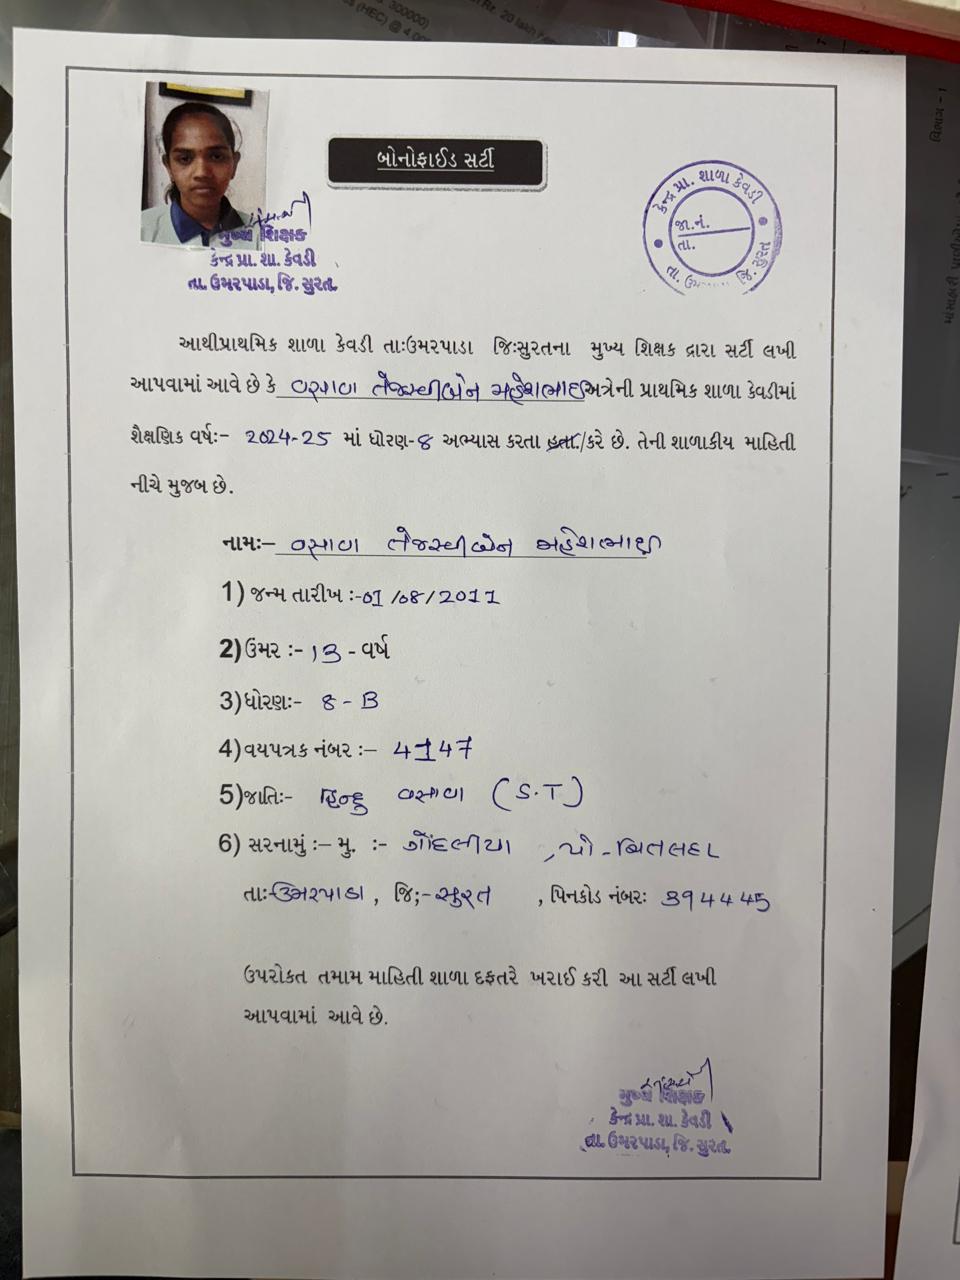 300000)
(HEC) @ 4
Rr. 20 lakh
વિભાગ - 1
બોનોફાઈડ સર્ટી
કેન્દ્ર પ્રા. શાળા કેવડી
જા.નં.
તા.
તા. જિ. સુરત
મુખ્ય શિક્ષક
કેન્દ્ર પ્રા. શા. કેવડી
તા. ઉમરપાડા, જિ. સુરત.
આથીપ્રાથમિક શાળા કેવડી તાઃઉમરપાડા જિઃસુરતના મુખ્ય શિક્ષક દ્વારા સર્ટી લખી
આપવામાં આવે છે કે વસાવા તેજસ્વીબેન મહેશભાઇ અત્રેની પ્રાથમિક શાળા કેવડીમાં
શૈક્ષણિક વર્ષઃ- 2024-25 માં ધોરણ-8 અભ્યાસ કરતા હતા./કરે છે. તેની શાળાકીય માહિતી
નીચે મુજબ છે.
નામઃ- વસાવા તેજસ્વીબેન મહેશભાઇ
1) જન્મ તારીખ :-01/08/2011
2) ઉમર :- 13 - વર્ષ
3) ધોરણઃ- 8 - B
4) વયપત્રક નંબર :- 4147
5) જાતિઃ- હિન્દુ વસાવા (S.T)
6) સરનામું :- મુ. :- ગોંદલીયા , પો - બિતલદા
તાઃ-ઉમરપાડા , જિ;-સુરત , પિનકોડ નંબરઃ 394445
ઉપરોકત તમામ માહિતી શાળા દફતરે ખરાઈ કરી આ સર્ટી લખી
આપવામાં આવે છે.
મુખ્ય શિક્ષક
કેન્દ્ર પ્રા. શા. કેવડી
તા. ઉમરપાડા, જિ. સુરત.